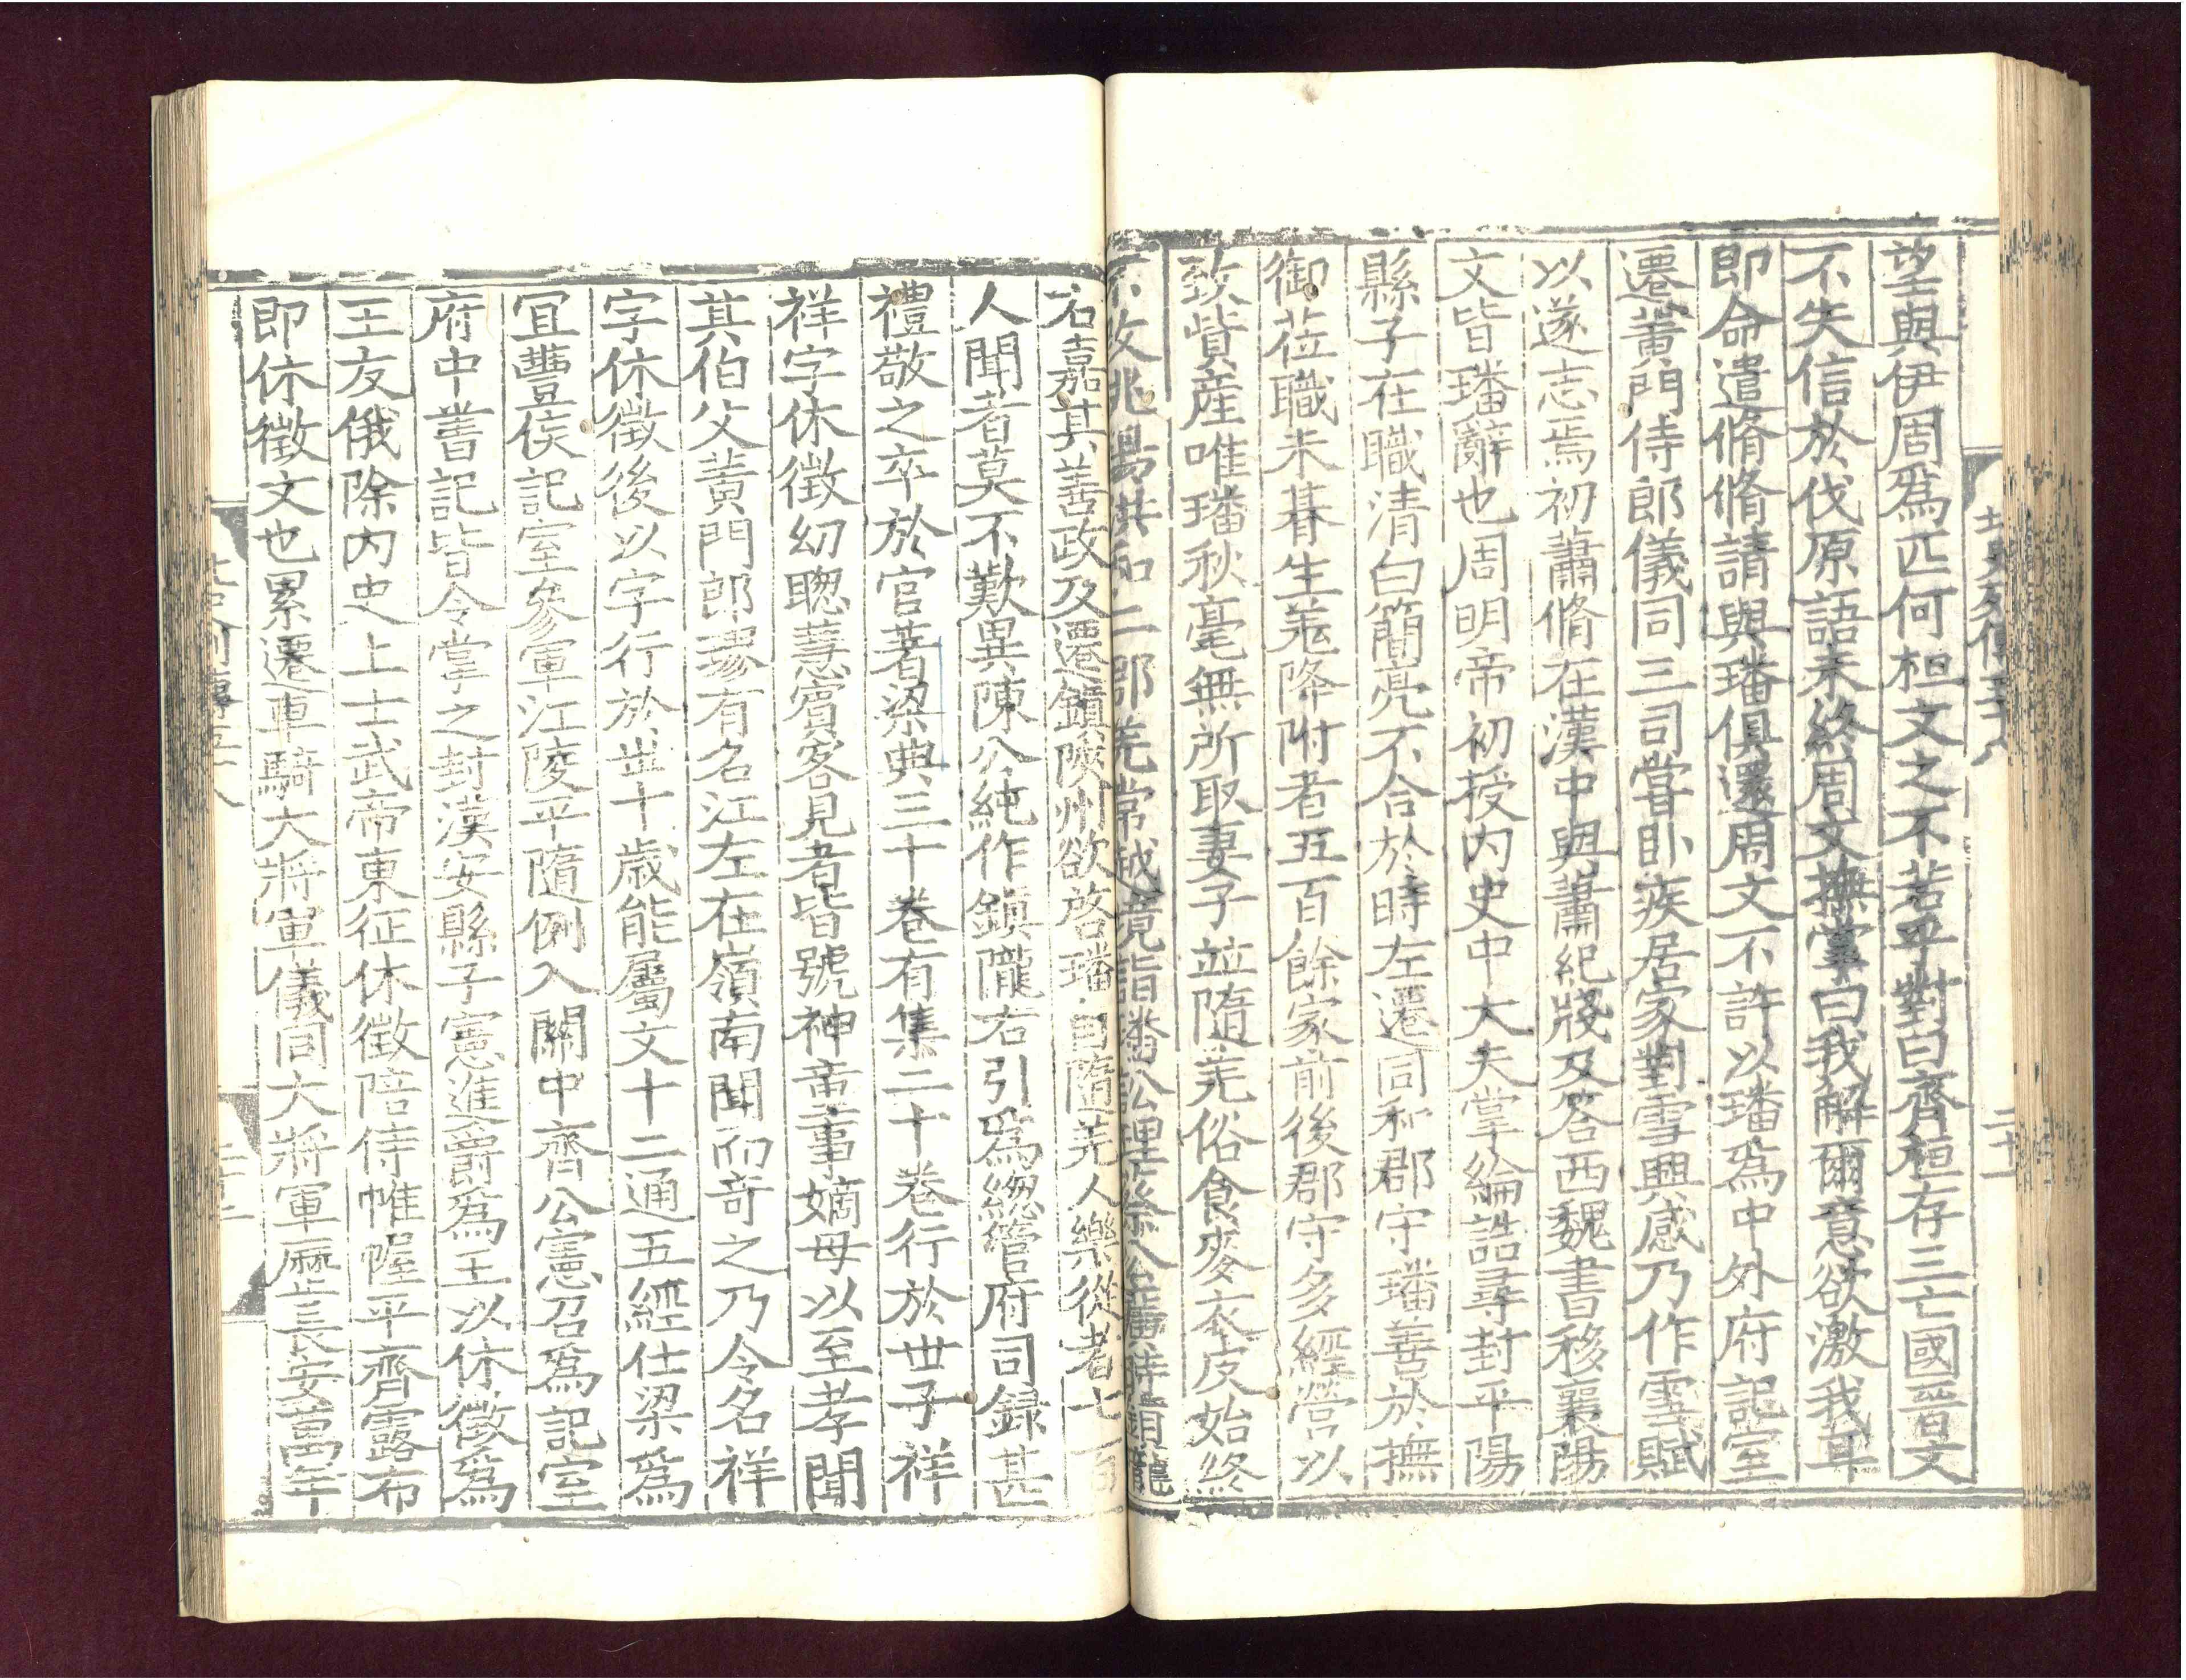 望與伊周爲匹何桓文之不若乎對曰齊桓存三亡國晉文
不失信於伐原語未終周文撫掌曰我解爾意欲激我耳
即命遣脩脩請與璠俱還周文不許以璠爲中外府記室
遷黃門侍郎儀同三司嘗臥疾居家對雪興感乃作雪賦
以遂志焉初蕭脩在漢中與蕭紀牋及答西魏書移襄陽
文皆璠辭也周明帝初授内史中大夫掌綸誥尋封平陽
縣子在職清白簡亮不合於時左遷同和郡守璠善於撫
御莅職未朞生羌降附者五百餘家前後郡守多經營以
致貲産唯璠秋毫無所取妻子並隨羌俗食麥衣皮始終
不改洮陽洪和二郡羌常越境詣璠訟理蔡公廣時鎮隴
右嘉其善政及遷鎮陝州欲啓璠自隨羌人樂從者七百
人聞者莫不歎異陳公純作鎮隴右引爲總管府司録甚
禮敬之卒於官著梁典三十卷有集二十卷行於世子祥
祥字休徵幼聰慧賓客見者皆號神童事嫡母以至孝聞
其伯父黃門郎璆有名江左在嶺南聞而奇之乃令名祥
字休徵後以字行於世十歲能屬文十二通五經仕梁爲
宜豐侯記室參軍江陵平隨例入關中齊公憲召爲記室
府中書記皆令掌之封漢安縣子憲進爵爲王以休徵爲
王友俄除内史上士武帝東征休徵陪侍帷幄平齊露布
即休徵文也累遷車騎大將軍儀同大將軍歷長安萬年
北史列傳五十八
二十一